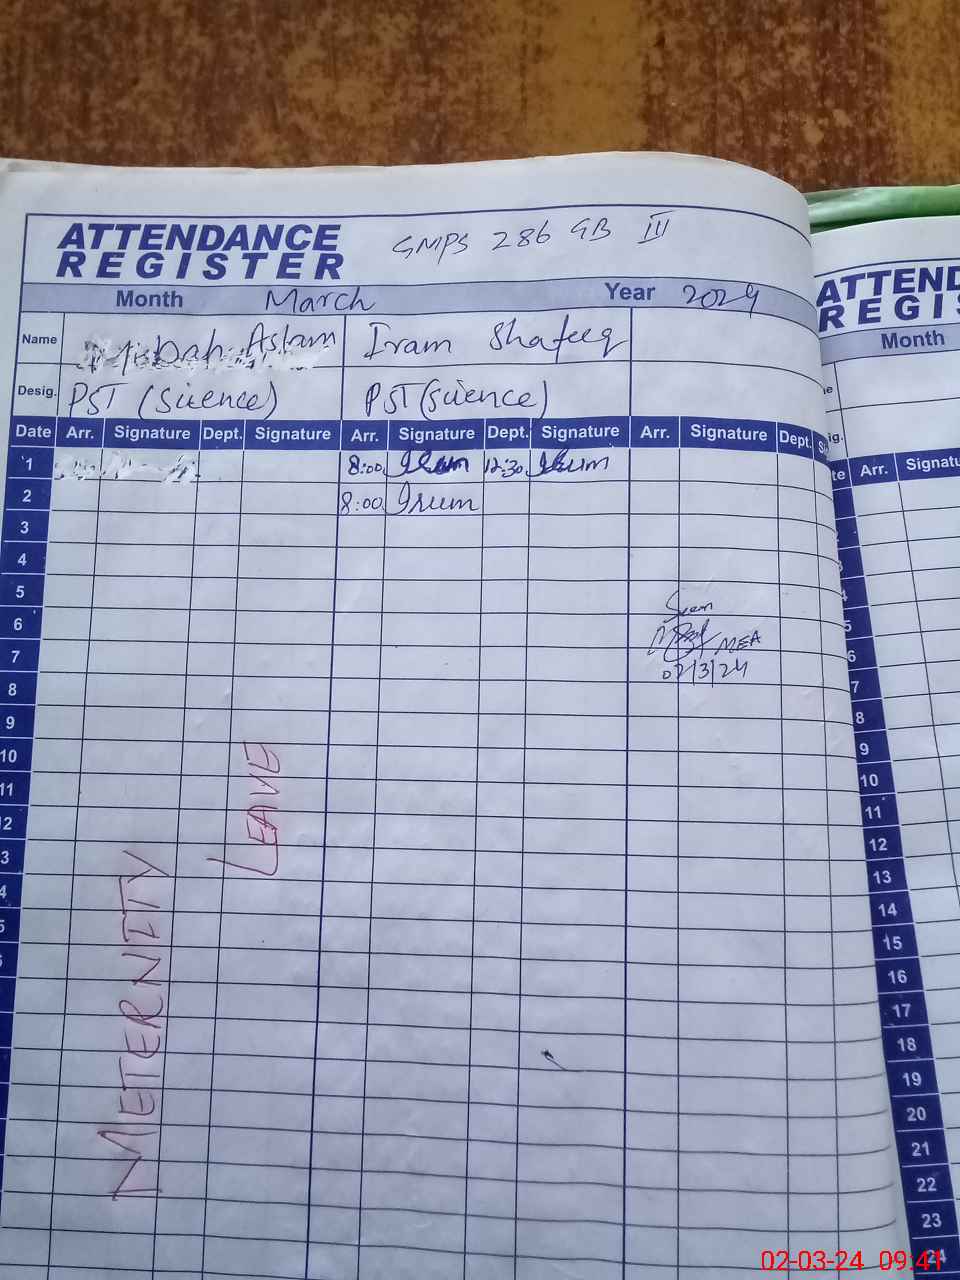 ATTENDANCE REGISTER GMPS 286 GB III
Month March Year 2024
Name Misbah Aslam Iram Shafeeq
Desig. PST (Science) PST (Science)
Date Arr. Signature Dept. Signature Arr. Signature Dept. Signature Arr. Signature Dept.
1 8:00 Irum 12:30 Irum
2 8:00 Irum
3
4
5
6 Seen
7 MEA
8 02/3/24
9
10
11
12
13
14
METERNITY
LEAVE
ATTEND
REGIS
Month
Arr. Signatu
5
6
7
8
9
10
11
12
13
14
15
16
17
18
19
20
21
22
23
24
02-03-24 09:41